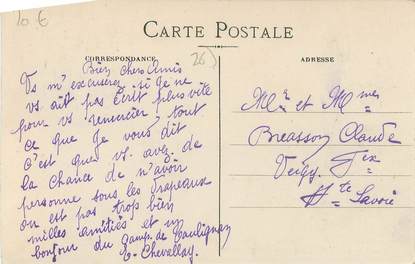 10 €
CARTE POSTALE
CORRESPONDANCE
ADRESSE
26)
Bien chers Amis
Vs m'excuserez si je ne
vs. ait pas écrit plus vite
pour vs remercier, tout
ce que je vous dit
c'est que vs. avez de
la chance de n'avoir
personne sous les drapeaux
on est pas trop bien
milles amitiés et un
bonjour du Camp. de Taulignan
E. Chevallay
Mr et Mme
Breasson Claude
Veigy Fix
Hte Savoie